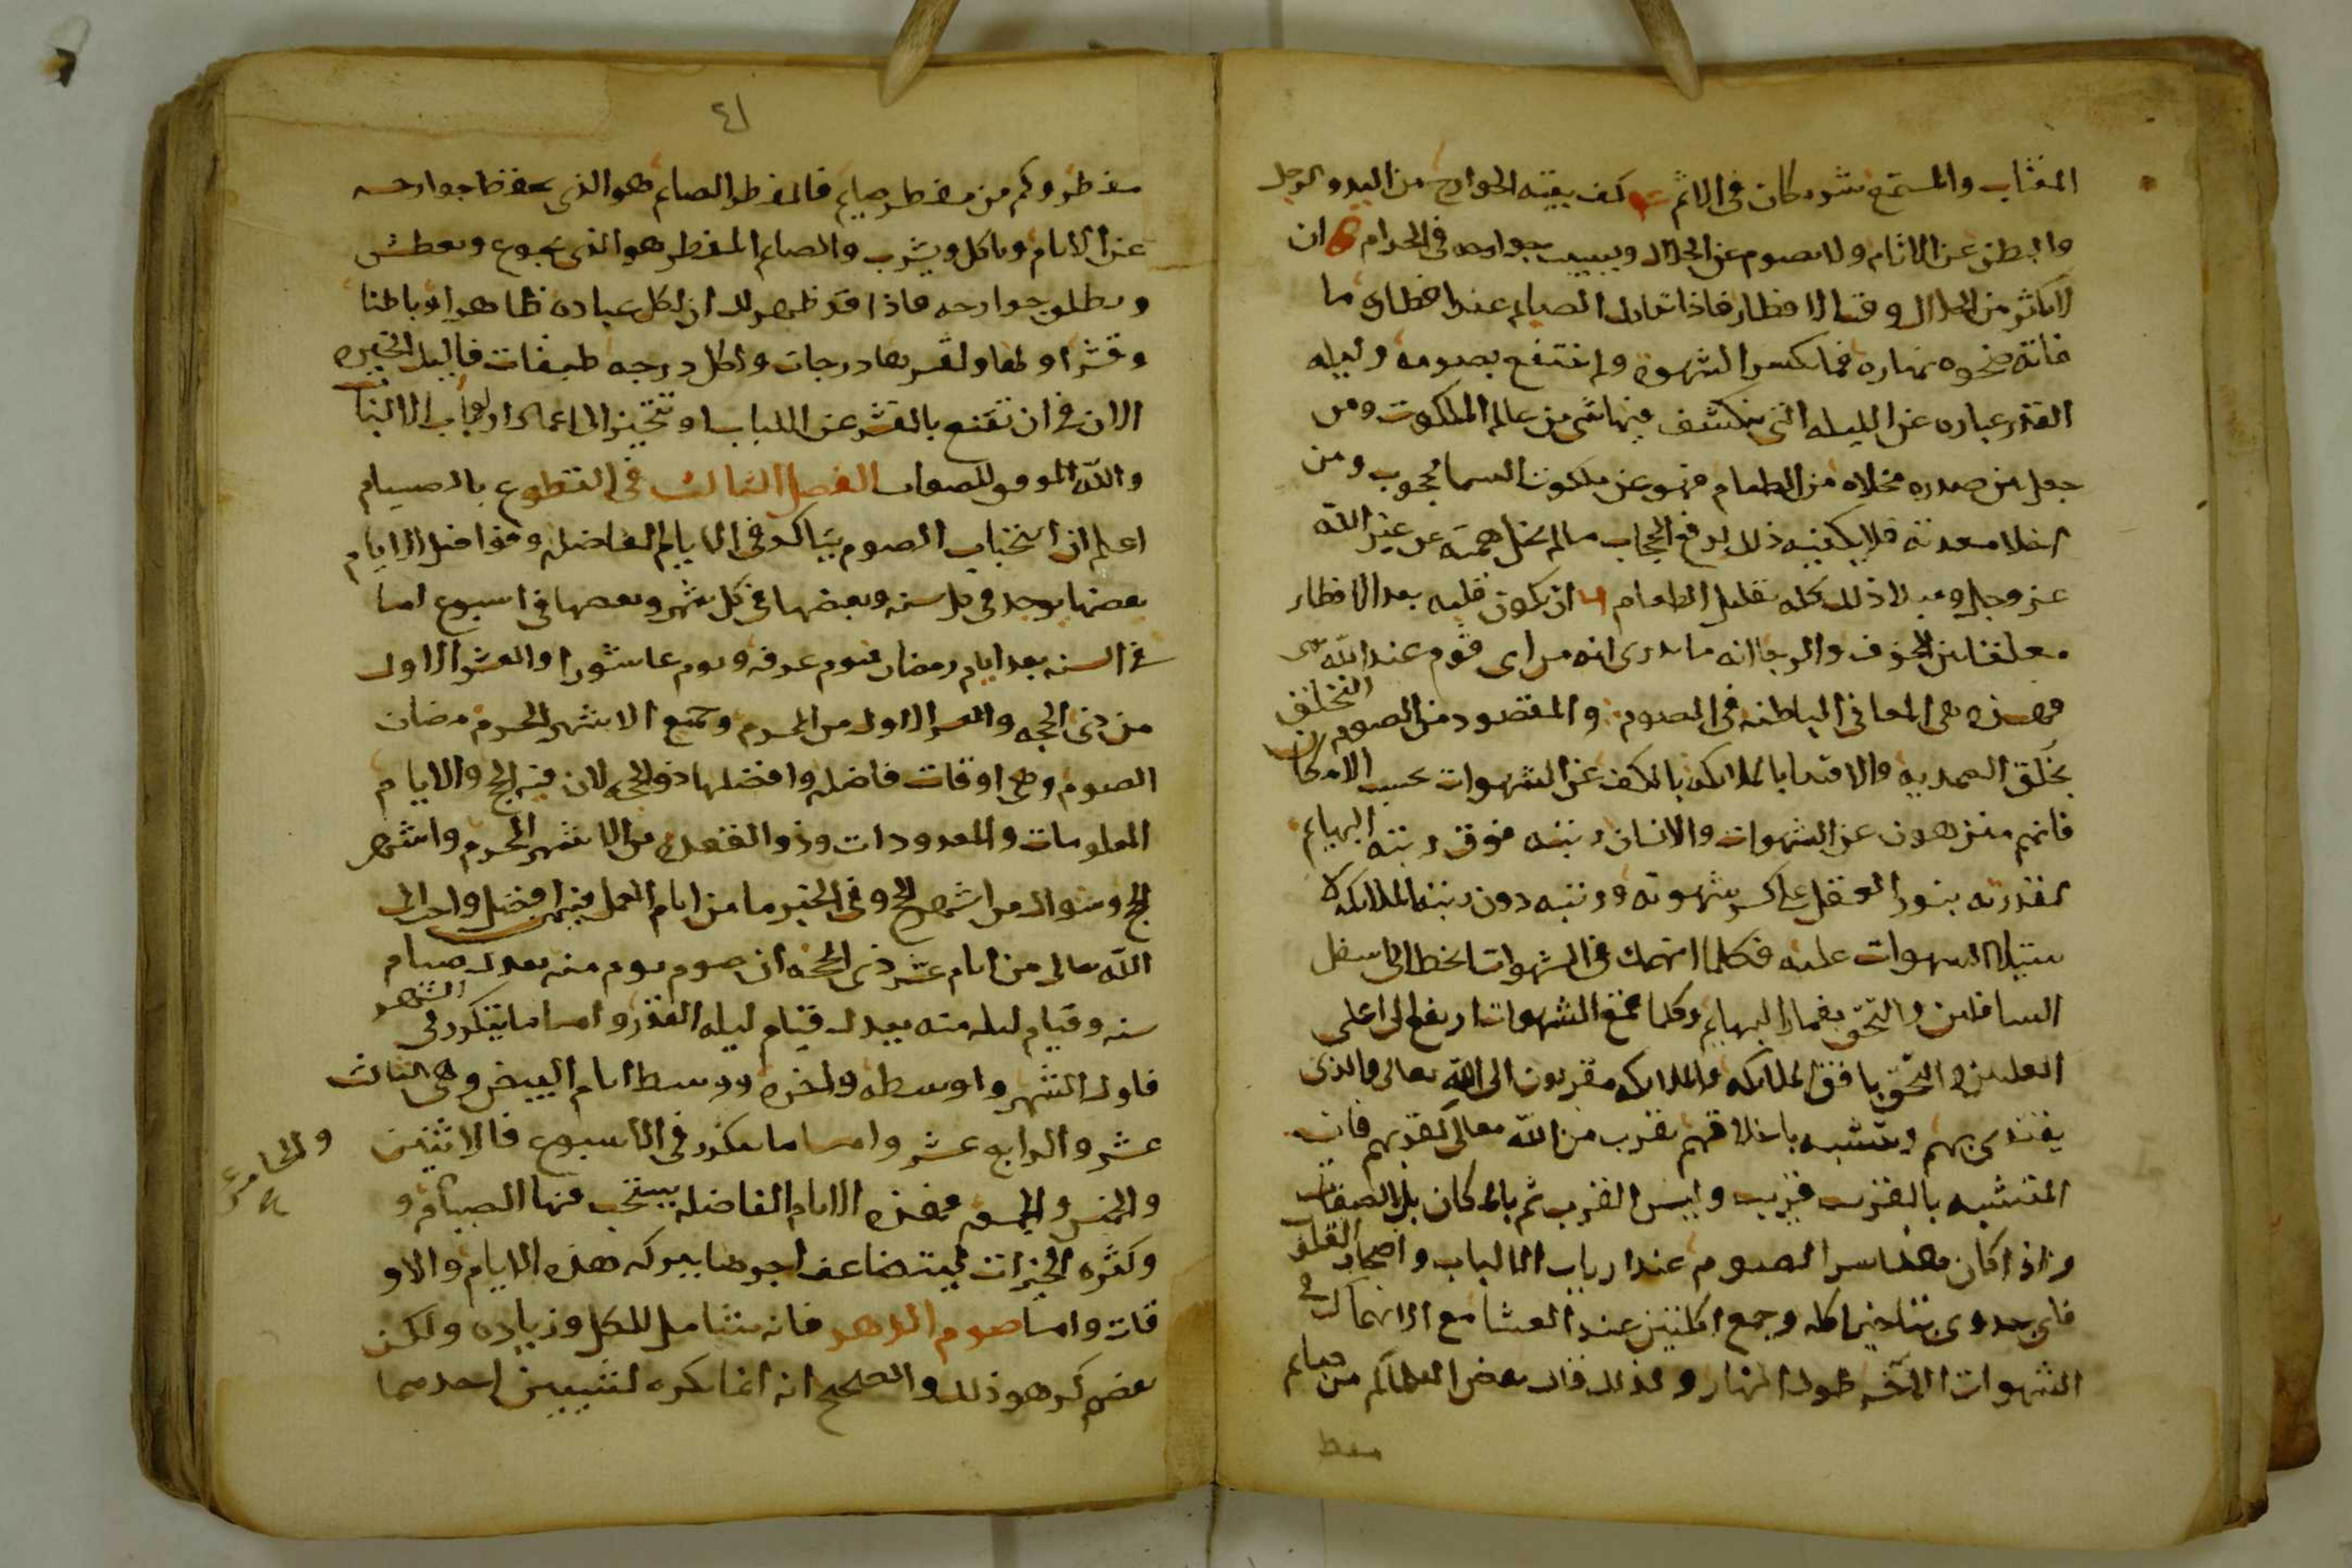 المغتاب والمستمع شريكان في الاثم كف بقية الجوارح من اليد والرجل
والبطن عن الاثام ولا يصوم عن الحلال ويسيب جوارحه في الحرام ان
لا يكثر من الحلال وقت الافطار فاذا تدارك الصيام عند افطاره ما
فاته ضحوه نهاره فما كسر الشهوه ولم ينتفع بصومه وليله
القدر عباره عن الليله التي ينكشف فيها شي من عالم الملكوت ومن
جعل بين صدره مخلاه من الطعام فهو عن ملكوت السما محجوب ومن
اخلا معدته فلا يكفيه ذلك لرفع الحجاب مالم يخل همته عن غير الله
عز وجل ذلك كله تقليل الطعام ان يكون قلبه بعد الافطار
معلقا بين الخوف والرجا انه ما يدرى انه من اى قوم عند الله
فهذه هى المعانى الباطنه فى الصوم والمقصود من الصوم التخلق
بخلق الصمديه والاقتدا بالملائكه بالكف عن الشهوات بحسب الامكان
فانهم منزهون عن الشهوات والانسان رتبته فوق رتبته البهايم
لقدرته بنور العقل على كسر شهوته ورتبته دون رتبة الملايكه لا
ستيلا الشهوات عليه فكلما انهمك فى الشهوات انحط الى اسفل
السافلين والتحق بغمار البهايم وكلما قمع الشهوات ارتفع الى اعلى
العليين والتحق بافق الملايكه والملايكه مقربون الى الله تعالى والذى
يقتدى بهم ويتشبه باخلاقهم يقرب من الله تعالى كقربهم فان
المتشبه بالقريب قريب وليس القرب ثم بالمكان بل بالصفات
واذا كان هذا سر الصوم عند ارباب الالباب واصحاب القلوب
فاى جدوى بتاخير اكله وجمع اكلتين عند العشا مع الانهماك فى
الشهوات الاخر طول النهار ولذلك قال بعض العلما كم من صايم
مفطر
٤١
مفطر وكم من مفطر صايم فالمفطر الصايم هو الذى يحفظ جوارحه
عن الاثام وياكل ويشرب والصايم المفطر هو الذى يجوع ويعطش
ويطلق جوارحه فاذا قد ظهر لك ان لكل عباده ظاهرا وباطنا
وقشرا ولبا ولقشرها درجات ولكل درجه طبقات فاليك الخيره
الان فى ان تقنع بالقشر عن اللباب او تتحيز الى غمار ارباب الالباب
والله الموفق للصواب الفصل الثالث فى التطوع بالصيام
اعلم ان استحباب الصوم يتاكد فى الايام الفاضله وفواضل الايام
بعضها يوجد فى كل سنه وبعضها فى كل شهر وبعضها فى اسبوع اما
فى السنه بعد ايام رمضان فيوم عرفه ويوم عاشورا والعشر الاول
من ذى الحجه والعشر الاول من المحرم وجميع الاشهر الحرم مضان
الصوم وهى اوقات فاضله وافضلها ذو الحجه لان فيه الحج والايام
المعلومات والمعدودات وذو القعده من الاشهر الحرم واشهر
الحج وشوال من اشهر الحج وفى الخبر ما من ايام العمل فيهن افضل واحب الى
الله تعالى من ايام عشر ذى الحجه ان صوم يوم منه يعدل صيام
سنه وقيام ليله منه يعدل قيام ليله القدر واما ما يتكرر فى الشهر
فاول الشهر واوسطه واخره ووسط ايام البيض وهى الثالث
عشر والرابع عشر واما ما يتكرر فى الاسبوع فالاثنين
والخامس عشر
والخميس والجمعه فهذه الايام الفاضله يستحب فيها الصيام و
وكثره الخيرات ليتضاعف اجرها ببركه هذه الايام والاو
قات واما صوم الدهر فانه شامل للكل وزياده ولكن
بعضهم كرهو ذلك والصحيح انه انما يكره لشيين احدهما